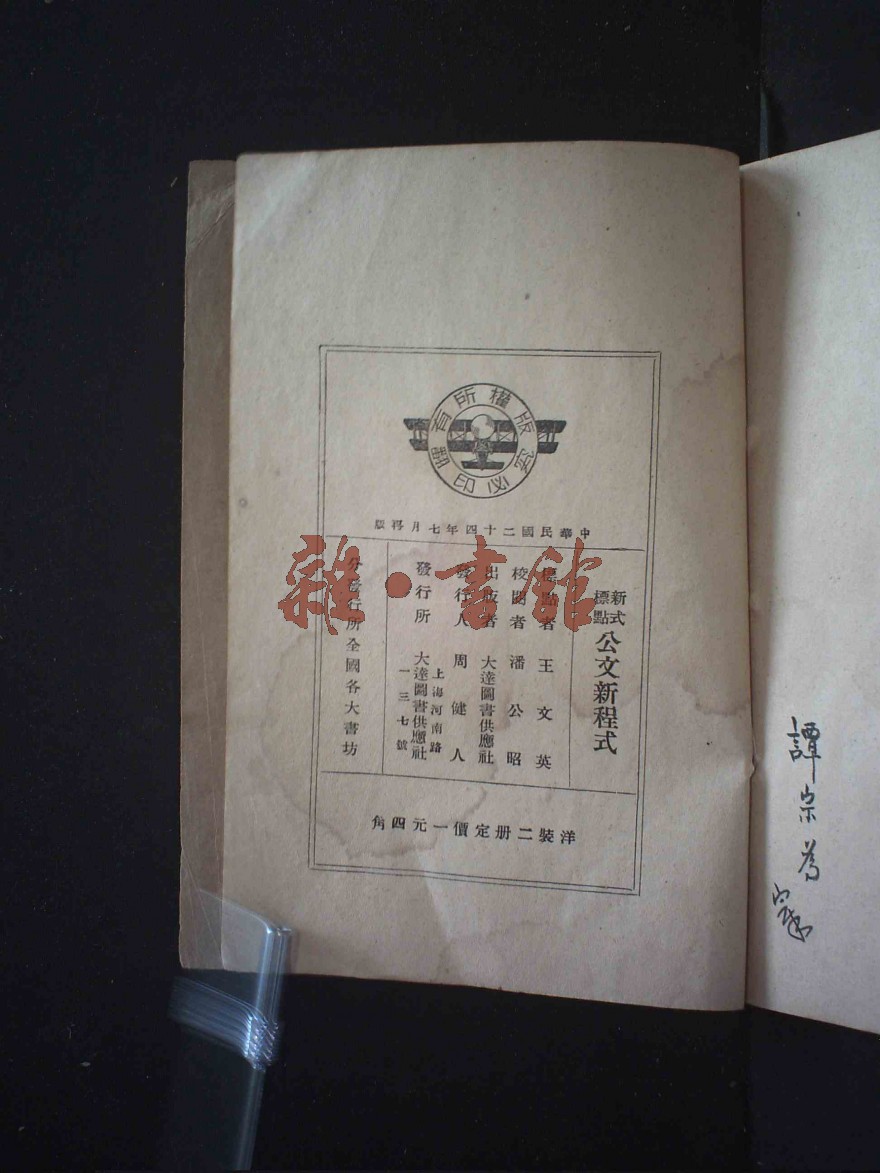 版權所有
翻印必究
中華民國二十四年七月再版
新式標點 公文新程式
標點者 王文英
校閱者 潘公昭
出版者 大達圖書供應社
發行人 周健人
上海河南路一三七號
發行所 大達圖書供應社
分發行所全國各大書坊
洋裝二册定價一元四角
雜·書館
譚宗為